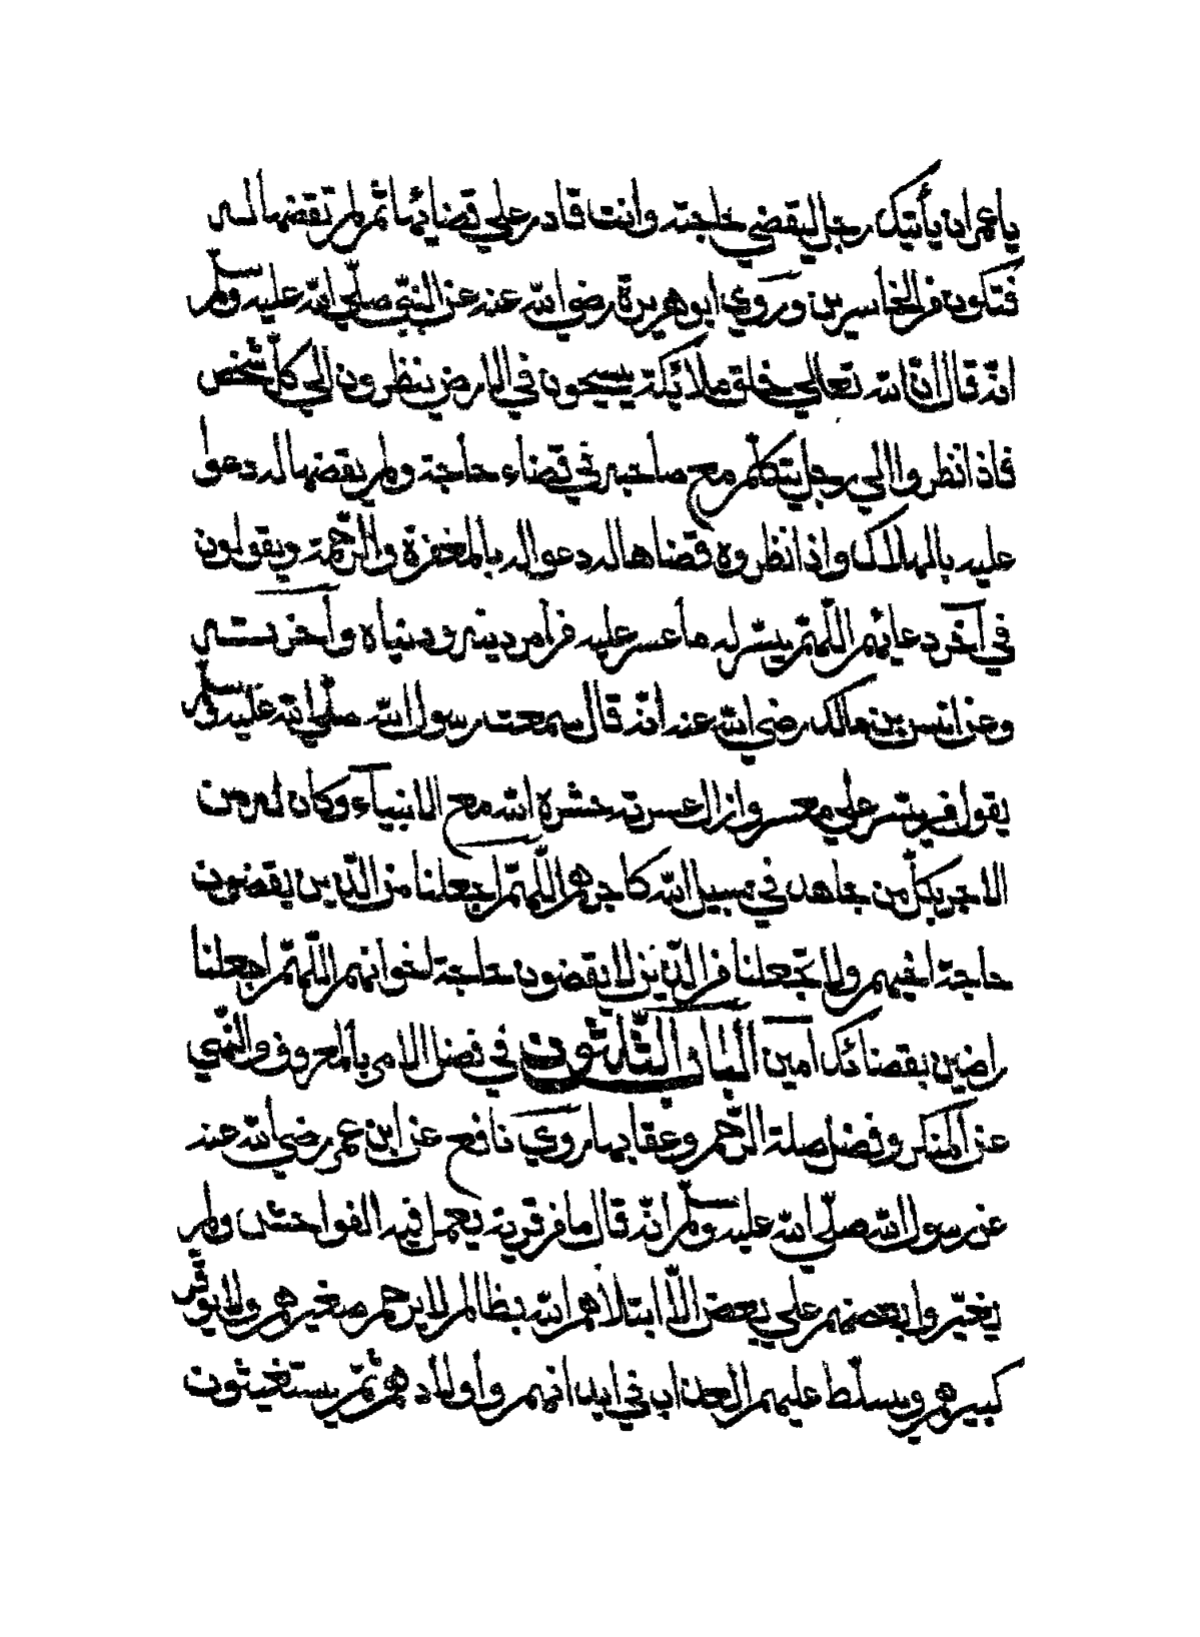 ياعمران يأتيك رجل ليقضي حاجته وانت قادر علي قضايها ثم لم تقضها له
فتكون من الخاسرين وروي ابو هريرة رضي الله عنه عن النبي صلّي الله عليه وسلم
انّه قال انّ الله تعالي خلق ملائكة يسيحون في الارض ينظرون الي كلّ شخص
فاذا نظروا الي رجل يتكلّم مع صاحبه في قضاء حاجة ولم يقضها له دعوا
عليه بالهلاك واذا نظروه قضاها له دعوا له بالمغفرة والرّحمة ويقولون
في آخر دعائهم اللّهمّ يسّر له ما عسر عليه من أمر دينه ودنياه وآخرته
وعن انس بن مالك رضي الله عنه انّه قال سمعت رسول الله صلّي الله عليه وسلم
يقول من يسّر علي معسر وازال عسرته حشره الله مع الانبيآء وكان له من
الاجر بكلّ من جاهد في سبيل الله كاجرهم اللّهمّ اجعلنا من الّذين يقضون
حاجة اخيهم ولا تجعلنا من الّذين لا يقضون حاجة اخوانهم اللّهمّ اجعلنا
راضين بقضائك آمين الباب الثّلاثون في فضل الامر بالمعروف والنّهي
عن المنكر وفضل صلة الرّحم وعقابها روي نافع عن ابن عمر رضي الله عنه
عن رسول الله صلّي الله عليه وسلم انّه قال ما من قرية يعمل فيه الفواحش ولم
يغيّروا بعضهم علي بعض الّا ابتلاهم الله بظالم لا يرحم صغيرهم ولا يوقّر
كبيرهم ويسلّط عليهم العذاب في ابدانهم وأولادهم ثمّ يستغيثون